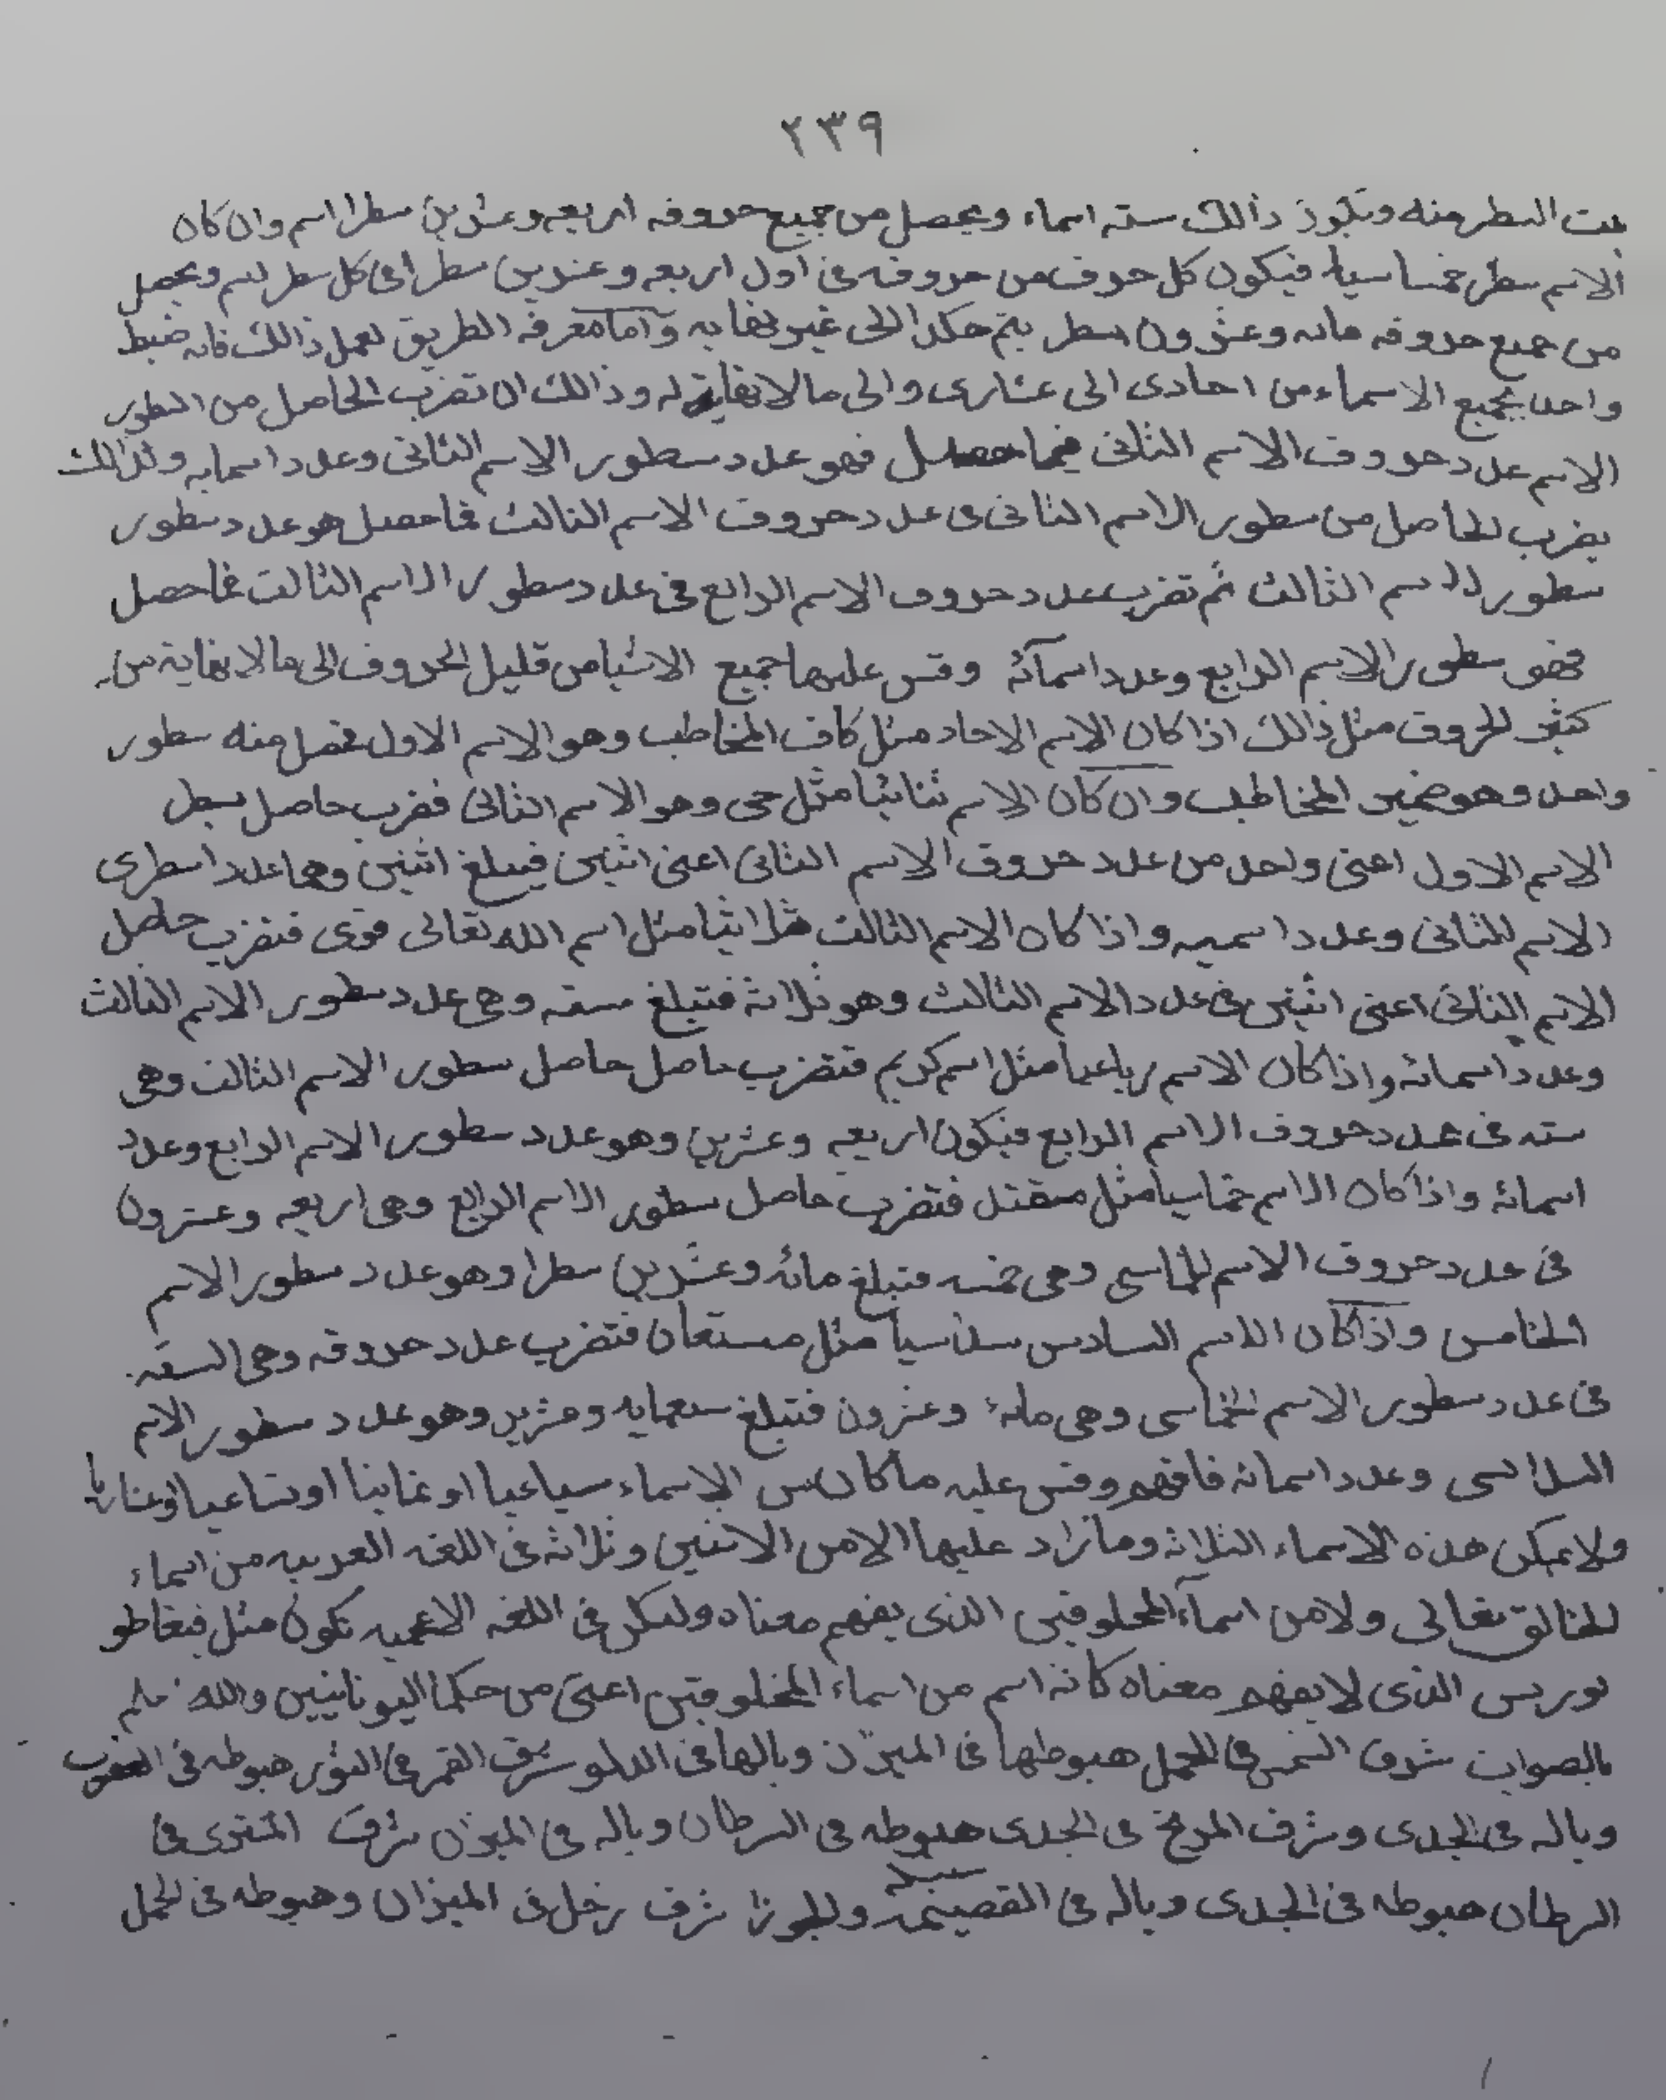 ٢٣٩
السطر منه وتكون ذالك سته اسماء ويحصل من جميع حروفه اربعه وعشرين سطرا اسم وان كان
الاسم سطر خماسيا فيكون كل حرف من حروفه فى اول اربعه وعشرين سطرا فى كل سطر اسم ويحصل
من جميع حروفه مائه وعشرون سطر يتم هكذا الى غير نهايه وآما معرفة الطريق لعمل ذالك فانه ضبط
واحد بجميع الاسماء من احادى الى عشارى والى مالانهاية له وذالك ان تضرب الحاصل من السطور
الاسم عدد حروف الاسم الثانى فيما حصل فهو عدد سطور الاسم الثانى وعدد اسمايه وكذالك
يضرب الحاصل من سطور الاسم الثانى فى عدد حروف الاسم الثالث فماحصل هو عدد سطور
سطور الاسم الثالث ثم تضرب عدد حروف الاسم الرابع فى عدد سطور الاسم الثالث فماحصل
فهو سطور الاسم الرابع وعدد اسمآئه وقس عليها جميع الاشيا من قليل الحروف الى مالانهاية من
كثير الحروف مثل ذالك اذا كان الاسم الاحاد مثل كاف المخاطب وهو الاسم الاول فحصل منه سطور
واحد وهو ضمير المخاطب وان كان الاسم ثنائيا مثل حى وهو الاسم الثانى فضرب حاصل سطر
الاسم الاول اعنى واحد من عدد حروف الاسم الثانى اعنى اثنين فيبلغ اثنين وهما عدد اسطرى
الاسم الثانى وعدد اسميه واذا كان الاسم الثالث ثلاثيا مثل اسم الله تعالى قوى فتضرب حاصل
الاسم الثانى اعنى اثنين فى عدد الاسم الثالث وهو ثلاثة فتبلغ سته وهى عدد سطور الاسم الثالث
وعدد اسمائه واذا كان الاسم رباعيا مثل اسم كريم فتضرب حاصل حاصل سطور الاسم الثالث وهى
سته فى عدد حروف الاسم الرابع فيكون اربعه وعشرين وهو عدد سطور الاسم الرابع وعدد
اسمائه واذا كان الاسم خماسيا مثل فتضرب حاصل سطور الاسم الرابع وهى اربعه وعشرون
فى عدد حروف الاسم الخماسى وهى خمسه فتبلغ مائه وعشرين سطرا وهو عدد سطور الاسم
الخامس واذا كان الاسم السادس سداسيا مثل مستعان فتضرب عدد حروفه وهى السته
فى عدد سطور الاسم الخماسى وهى مائه وعشرون فتبلغ سبعمايه وعشرين وهو عدد سطور الاسم
السداسى وعدد اسمائه فافهم وقس عليه ماكان من الاسماء سباعيا او ثمانيا او تساعيا او عشاريا
ولايمكن هذه الاسماء الثلاثه ومازاد عليها الا من الاثنين وثلاثه فى اللغه العربيه من اسماء
الخالق تعالى ولامن اسمآء المخلوقين الذى يفهم معناه ولكن فى اللغه الاعجميه تكون مثل
الذى لايفهم معناه كانه اسم من اسماء المخلوقين اعنى من حكما اليونانيين والله اعلم
بالصواب شرف الشمس فى الحمل هبوطها فى الميزان وبالها فى الدلو شرف القمر فى الثور هبوطه فى العقرب
وباله فى الجدى وشرف المريخ فى الجدى هبوطه فى السرطان وباله فى الميزان شرف المشترى فى
السرطان هبوطه فى الجدى وباله فى والجوزا شرف زحل فى الميزان وهبوطه فى الحمل